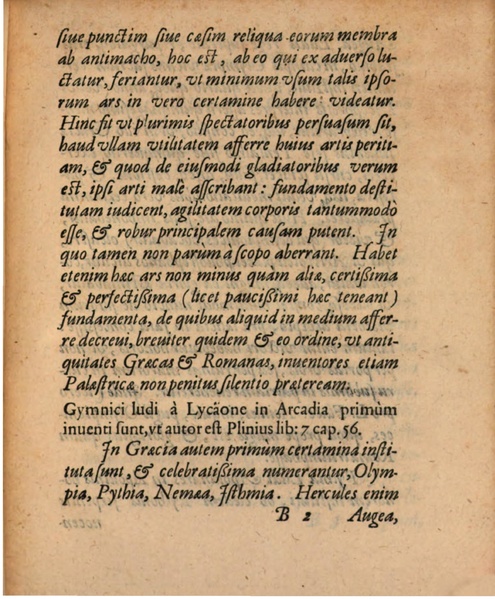 siue punctim siue cæsim reliqua eorum membra
ab antimacho, hoc est, ab eo qui ex aduerso lu-
ctatur, feriantur, vt minimum vsum talis ipso-
rum ars in vero certamine habere videatur.
Hinc fit vt plurimis spectatoribus persuasum sit,
haud vllam vtilitatem afferre huius artis periti-
am, & quod de eiusmodi gladiatoribus verum
est, ipsi arti malè asscribant: fundamento desti-
tutam iudicent, agilitatem corporis tantummodò
esse, & robur principalem causam putent. In
quo tamen non parùm à scopo aberrant. Habet
etenim hæc ars non minus quàm aliæ, certißima
& perfectißima (licet paucißimi hæc teneant)
fundamenta, de quibus aliquid in medium affer-
re decreui, breuiter quidem & eo ordine, vt anti-
quitates Græcas & Romanas, inuentores etiam
Palæstricæ non penitus silentio præteream.
Gymnici ludi à Lycàone in Arcadia primùm
inuenti sunt, vt autor est Plinius lib: 7 cap. 56.
In Græcia autem primùm certamina insti-
tuta sunt, & celebratißima numerantur, Olym-
pia, Pythia, Nemæa, Isthmia. Hercules enim
B 2 Augea,